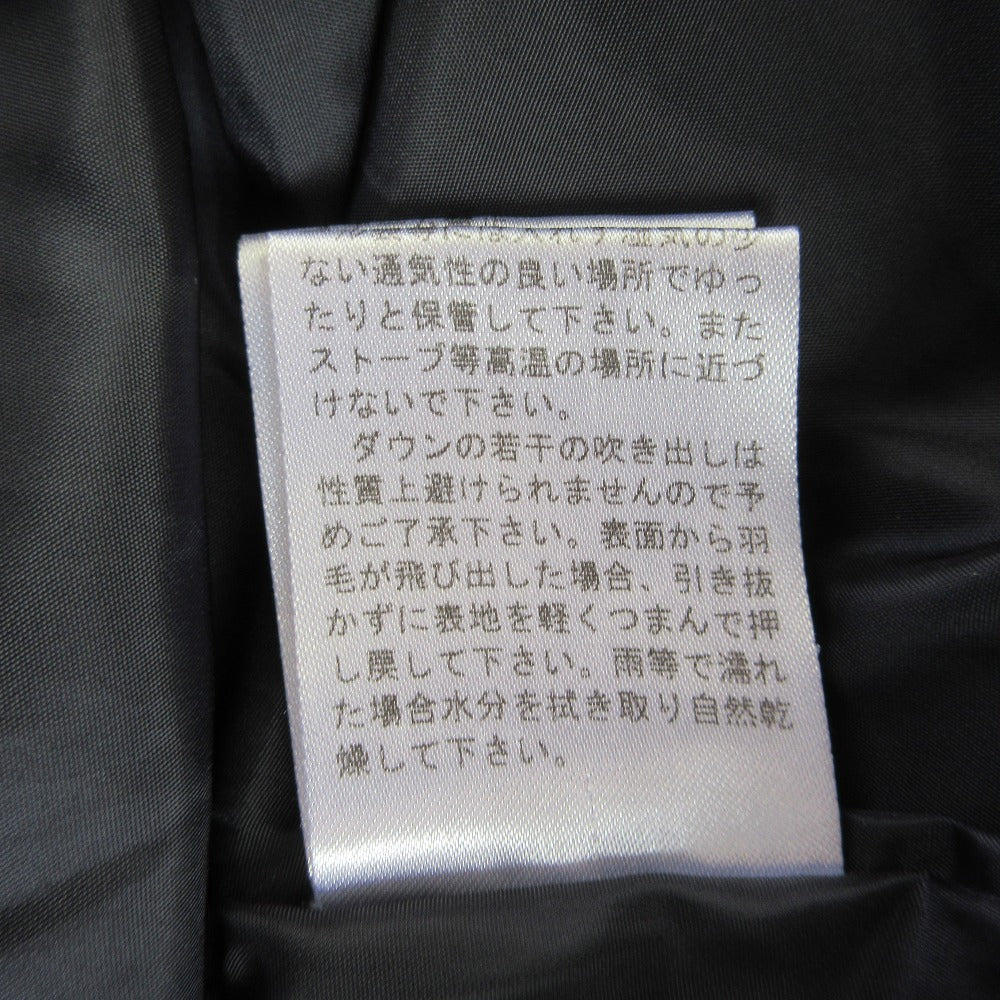 ない通気性の良い場所でゆっ
たりと保管して下さい。また
ストーブ等高温の場所に近づ
けないで下さい。
ダウンの若干の吹き出しは
性質上避けられませんので予
めご了承下さい。表面から羽
毛が飛び出した場合、引き抜
かずに表地を軽くつまんで押
し戻して下さい。雨等で濡れ
た場合水分を拭き取り自然乾
燥して下さい。